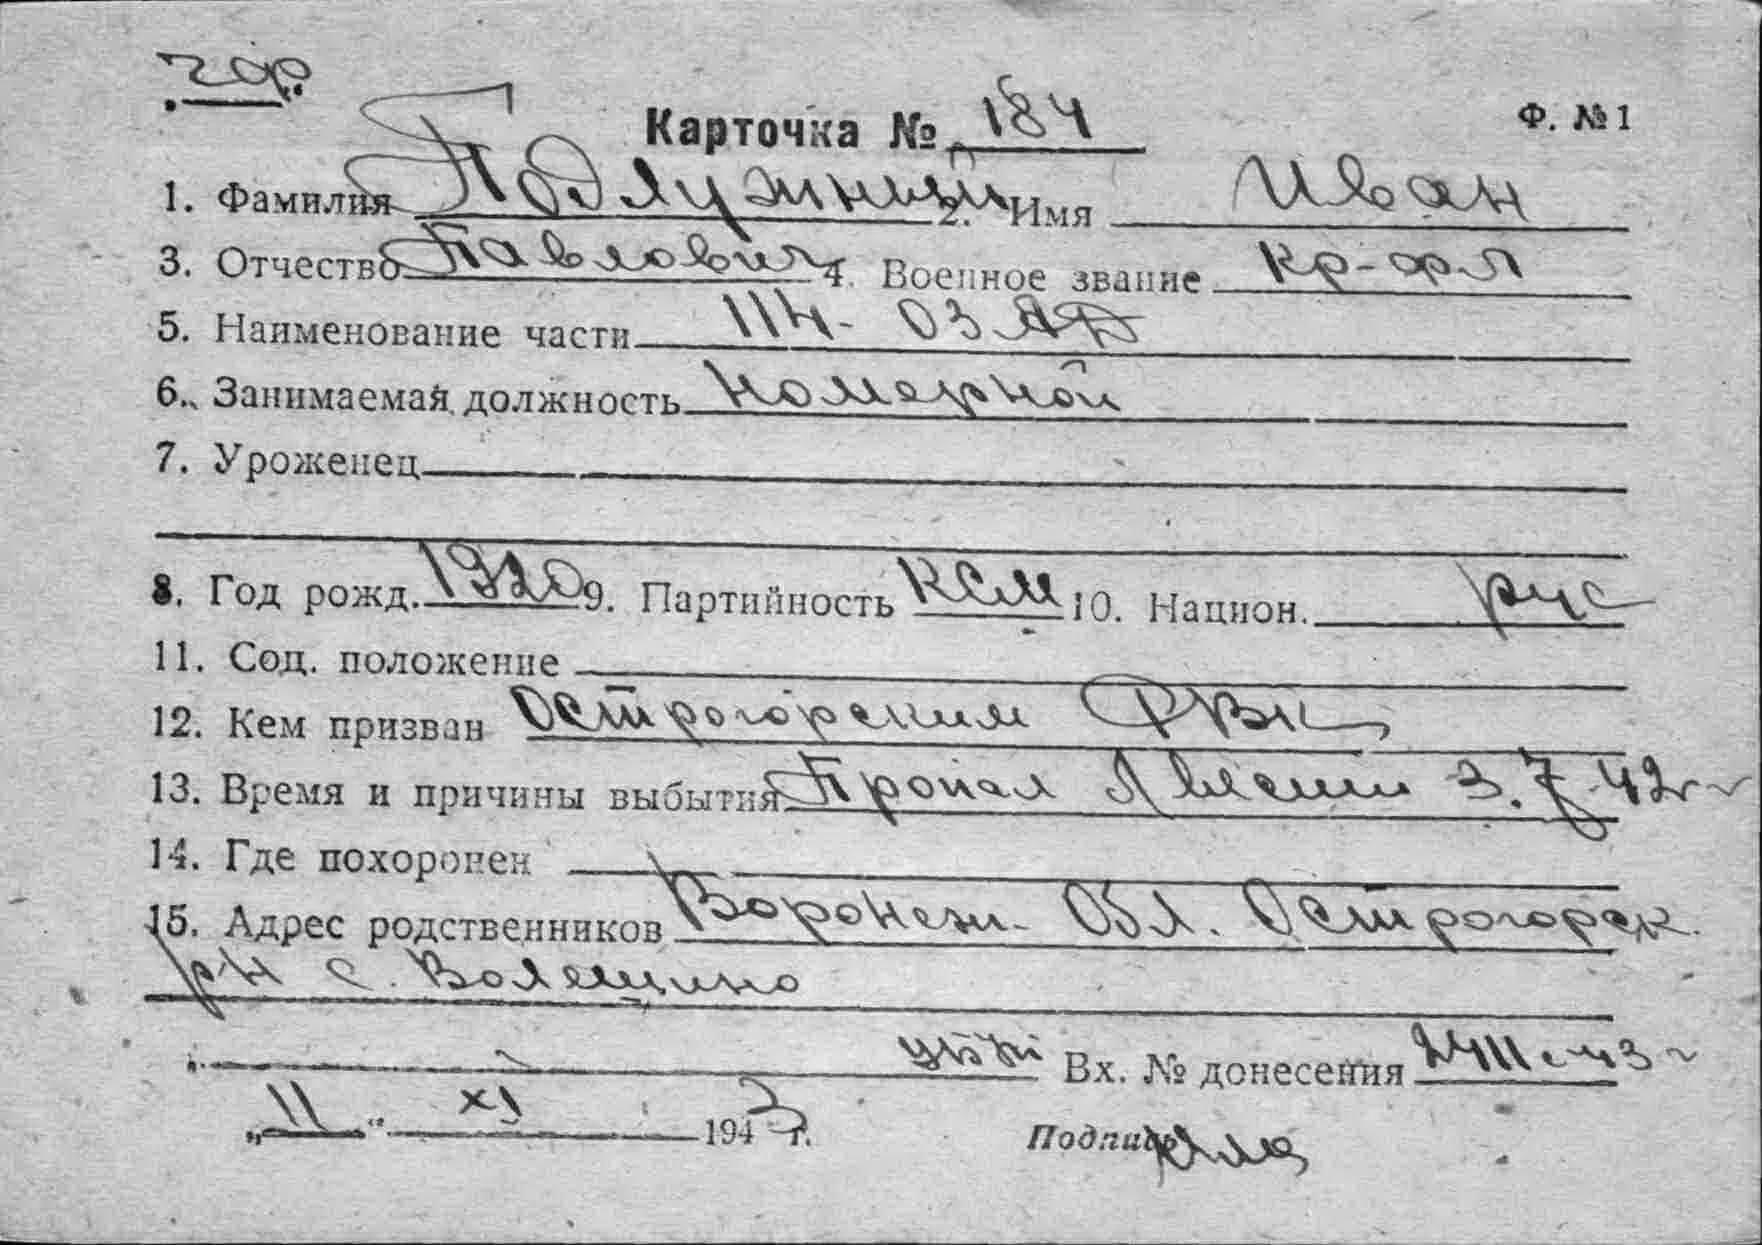 чф
Карточка № 184 Ф. №1
1. Фамилия Подлужный 2. Имя Иван
3. Отчество Павлович 4. Военное звание кр-фл
5. Наименование части 114- ОЗАД
6. Занимаемая должность номерной
7. Уроженец
8. Год рожд. 1920 9. Партийность КСМ 10. Национ. рус
11. Соц. положение
12. Кем призван Острогорским РВК
13. Время и причины выбытия Пропал 3.7.42г
14. Где похоронен
15. Адрес родственников Воронеж. Обл. Острогорск.
р-н с. Волещино
Вх. № донесения
„11“ XI 1943 г. Подпись